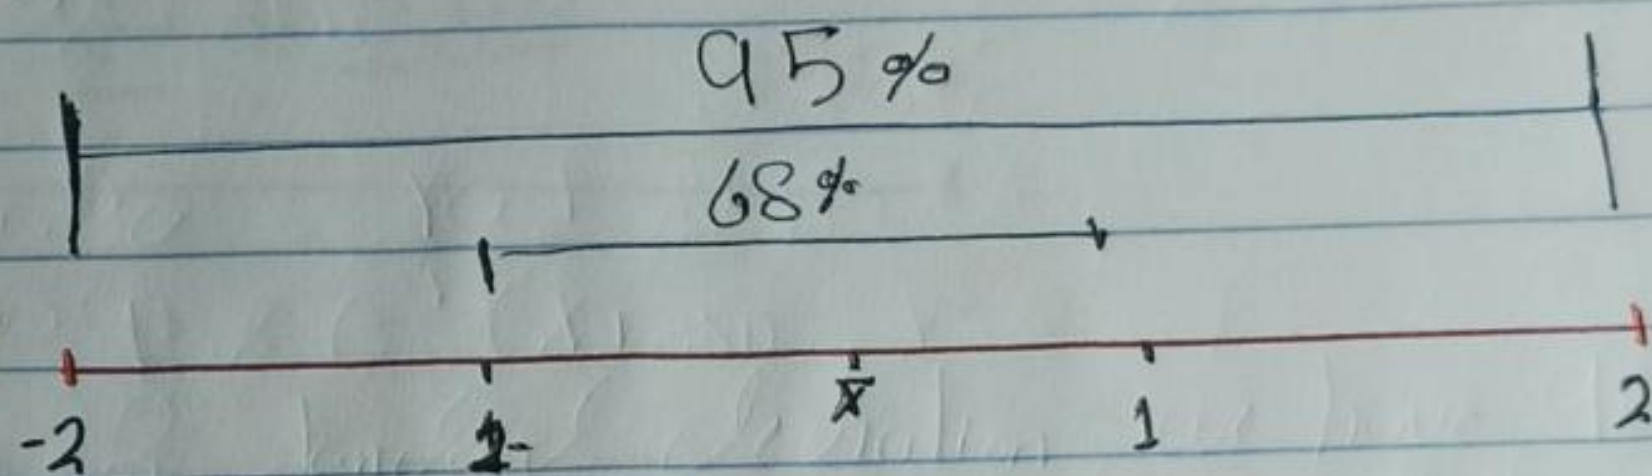 95%
68%
-2 x̄ 1 2